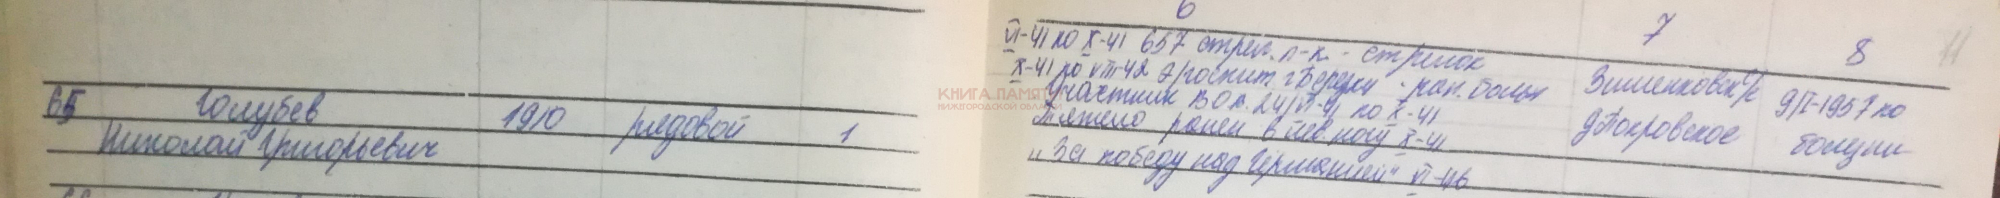 6 7 8 11
VI-41 по X-41 657 стрел. п-к. - стрелок
X-41 по VIII-42 эгоспит. - ран. больн
Участник ВОв. 24/VI-41 по X-41
Тяжело ранен в лев ногу X-41
"За победу над Германией" VI-46
65 Голубев 1910 рядовой 1
Николай Григорьевич
д Покровское
9/I-1957 по
болезни
КНИГА ПАМЯТИ
НИЖЕГОРОДСКОЙ ОБЛАСТИ